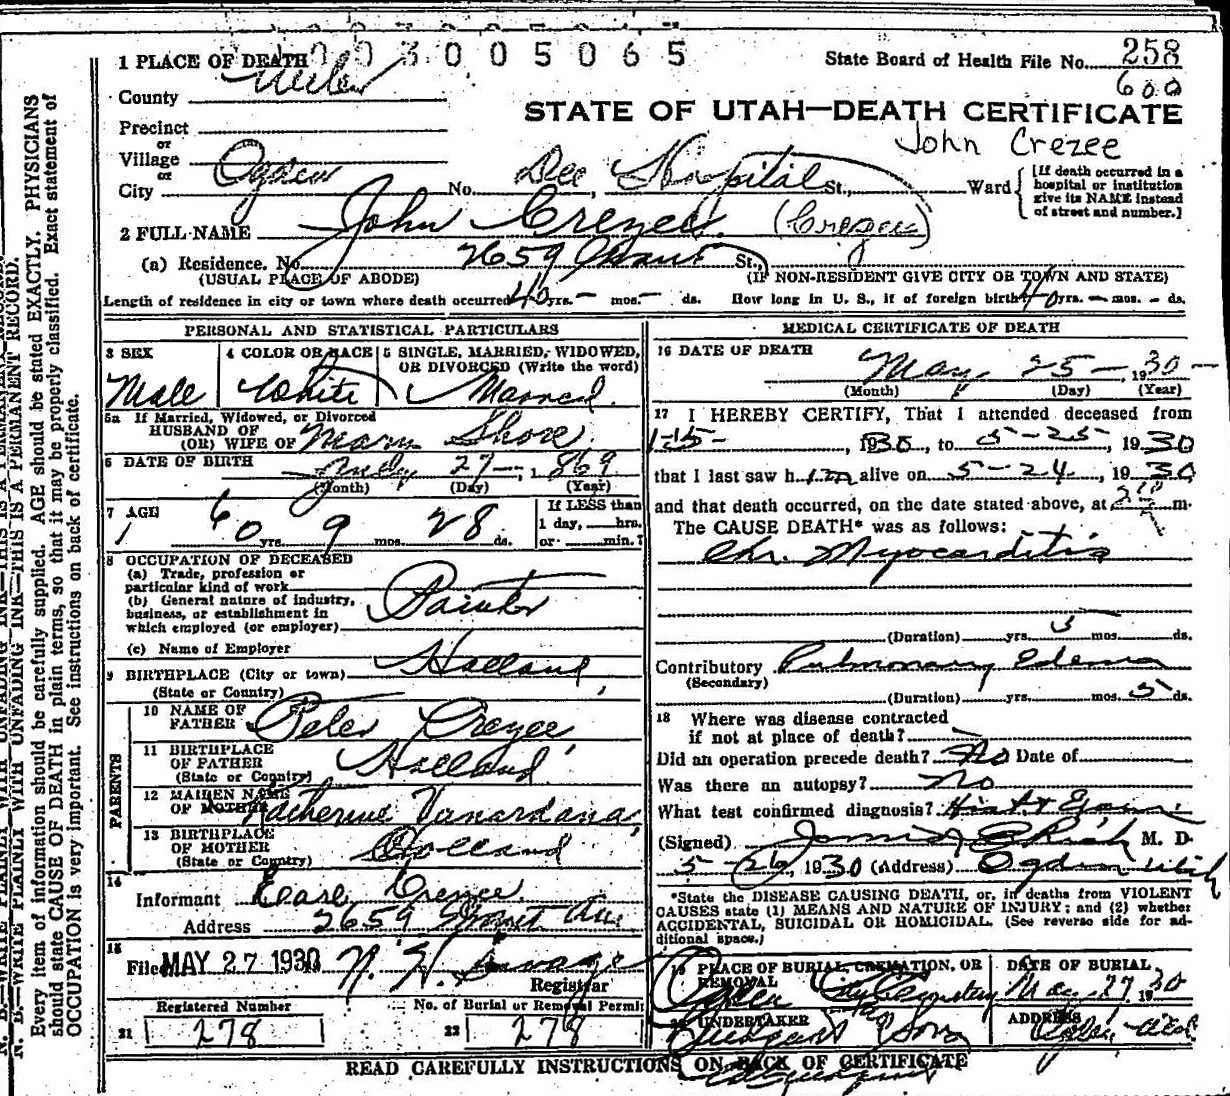 003005065
1 PLACE OF DEATH
State Board of Health File No. 258
600
County Weber
STATE OF UTAH—DEATH CERTIFICATE
Precinct
or
John Crezee
Village
or
City Ogden No. Dee Hospital St., Ward
[If death occurred in a hospital or institution give its NAME instead of street and number.]
2 FULL NAME John Crezee (Crezee)
(a) Residence. No. 2659 Grant St.,
(USUAL PLACE OF ABODE) (IF NON-RESIDENT GIVE CITY OR TOWN AND STATE)
Length of residence in city or town where death occurred 40 yrs. — mos. — ds. How long in U. S., if of foreign birth? 40 yrs. — mos. — ds.
PERSONAL AND STATISTICAL PARTICULARS
3 SEX 4 COLOR OR RACE 5 SINGLE, MARRIED, WIDOWED,
OR DIVORCED (Write the word)
Male White Married
5a If Married, Widowed, or Divorced
HUSBAND OF
(OR) WIFE OF Mary Shore
6 DATE OF BIRTH July 27 — 1869
(Month) (Day) (Year)
7 AGE 60 yrs. 9 mos. 28 ds.
If LESS than
1 day, hrs.
or min.?
8 OCCUPATION OF DECEASED
(a) Trade, profession or
particular kind of work
(b) General nature of industry,
business, or establishment in
which employed (or employer) Painter
(c) Name of Employer
9 BIRTHPLACE (City or town) Holland
(State or Country)
PARENTS
10 NAME OF
FATHER Peter Crezee
11 BIRTHPLACE
OF FATHER Holland
(State or Country)
12 MAIDEN NAME
OF MOTHER Katherine Vanardana
13 BIRTHPLACE
OF MOTHER Holland
(State or Country)
14
Informant Earl Crezee
Address 2659 Grant Ave
15
Filed MAY 27 1930
Registrar
Registered Number No. of Burial or Removal Permit
21 278 22 278
MEDICAL CERTIFICATE OF DEATH
16 DATE OF DEATH
May 25 — 1930
(Month) (Day) (Year)
17 I HEREBY CERTIFY, That I attended deceased from
1-15-, 1930, to 5-25-, 1930
that I last saw him alive on 5-24, 1930
and that death occurred, on the date stated above, at m.
The CAUSE DEATH* was as follows:
Chr. Myocarditis
(Duration) yrs. 5 mos. ds.
Contributory Pulmonary Edema
(Secondary)
(Duration) yrs. mos. 5 ds.
18 Where was disease contracted
if not at place of death?
Did an operation precede death? No Date of
Was there an autopsy? No
What test confirmed diagnosis?
(Signed) Rich M. D.
5-26, 1930 (Address) Ogden Utah
*State the DISEASE CAUSING DEATH, or, in deaths from VIOLENT
CAUSES state (1) MEANS AND NATURE OF INJURY; and (2) whether
ACCIDENTAL, SUICIDAL OR HOMICIDAL. (See reverse side for ad-
ditional space.)
19 PLACE OF BURIAL, CREMATION, OR
REMOVAL
Ogden City Cemetery
DATE OF BURIAL
May 27 1930
UNDERTAKER
& Sons
ADDRESS
Ogden Utah
READ CAREFULLY INSTRUCTIONS ON BACK OF CERTIFICATE
N. B.—WRITE PLAINLY WITH UNFADING INK—THIS IS A PERMANENT RECORD.
Every item of information should be carefully supplied. AGE should be stated EXACTLY. PHYSICIANS
should state CAUSE OF DEATH in plain terms, so that it may be properly classified. Exact statement of
OCCUPATION is very important. See instructions on back of certificate.